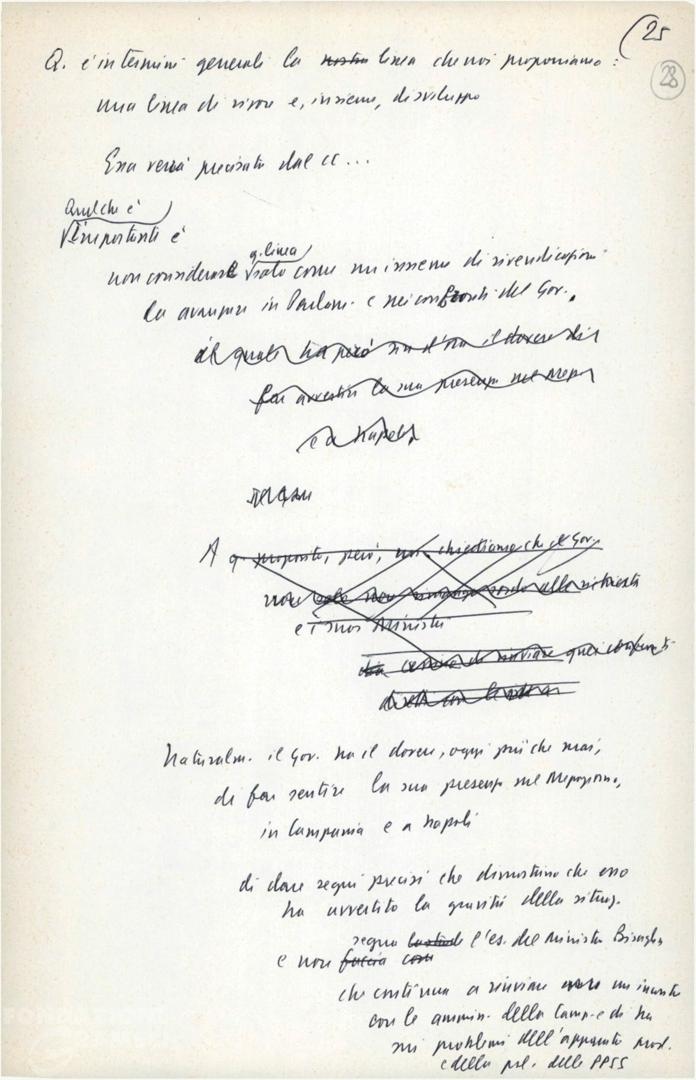 (25
28
Q. è in termini generali la nostra linea che noi proponiamo:
una linea di rigore e, insieme, di sviluppo
Essa verrà precisata dal CC...
Quel che è
importante è
q. linea
non considerare solo come un insieme di rivendicazioni
da avanzare in Parlam. e nei confronti del Gov.,
il quale ha però sin d'ora il dovere di
far avvertire la sua presenza nel Mezz.
e a Napoli
A q. proposito, però, noi chiediamo che il Gov.
non
e i suoi Ministri
Naturalm. il Gov. ha il dovere, oggi più che mai,
di far sentire la sua presenza nel Mezzogiorno,
in Campania e a Napoli
di dare segni precisi che dimostrino che esso
ha avvertito la gravità della situaz.
segua l'es. del Ministro Bisaglia
e non faccia come
che continua a rinviare un incontro
con le ammin. della Camp. e di Na
sui problemi dell'apparato prod.
e della pol. delle PPSS